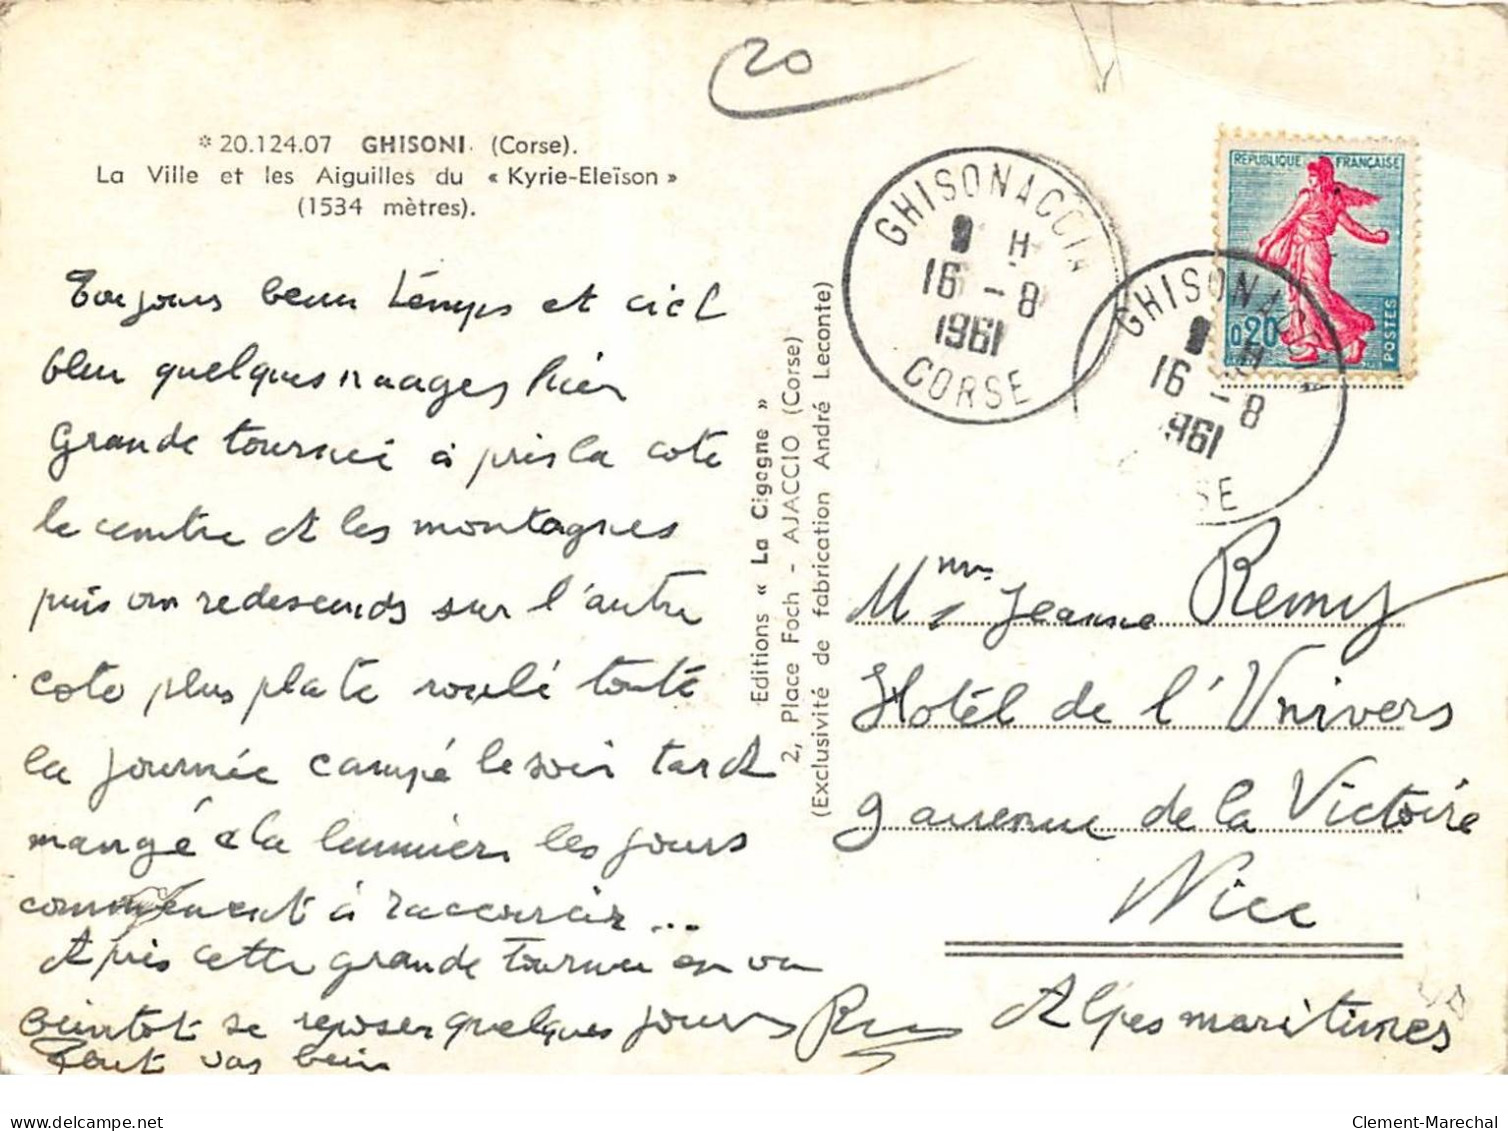 20
* 20.124.07 GHISONI. (Corse).
La Ville et les Aiguilles du « Kyrie-Eleïson »
(1534 mètres).
Toujours beau temps et ciel
bleu quelques nuages hier
Grande tournée à pris la cote
le centre et les montagnes
puis on redescends sur l'autre
cote plus plate roulé toute
la journée campé le soir tard
mangé à la lumière les jours
commencent à raccourcir...
Après cette grande tournée on va
bientot se reposer quelques jours
Tout vas bien
Editions « La Cigogne »
2, Place Foch - AJACCIO (Corse)
(Exclusivité de fabrication André Leconte)
GHISONACCIA
9 H
16 - 8
1961
CORSE
REPUBLIQUE FRANÇAISE
0,20
POSTES
GHISONACCIA
9 H
16 - 8
1961
SE
Mme Jeanne Remy
Hotel de l'Univers
9 avenue de la Victoire
Nice
Alpes maritimes
Clement-Marechal